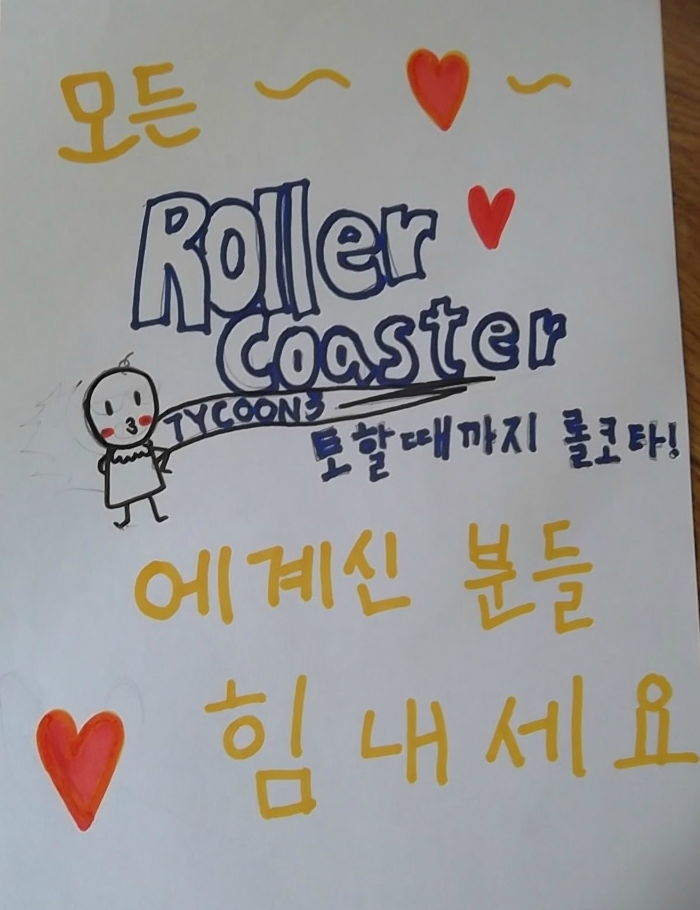 모든 ~ ~
Roller
Coaster
TYCOON3
토할때까지 롤코타!
에계신 분들
힘내세요